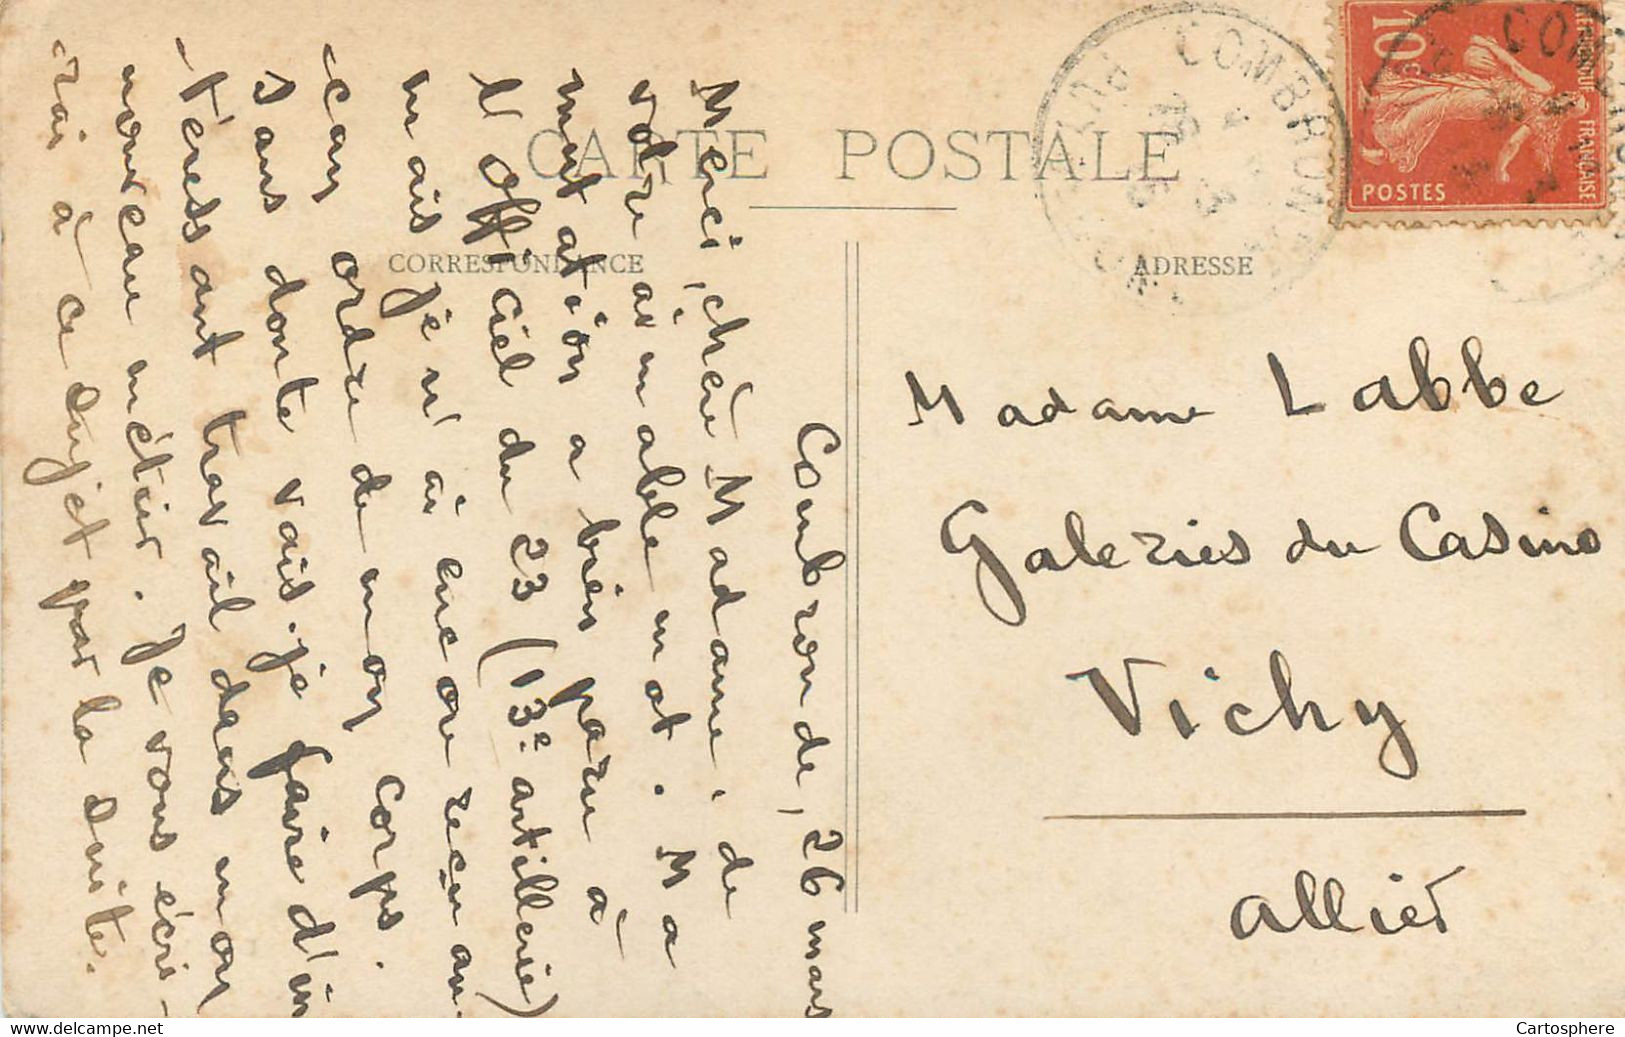 CARTE POSTALE
CORRESPONDANCE
ADRESSE
Combronde, 26 mars
Merci, chère Madame, de
votre aimable mot. Ma
mutation a bien paru à
l'Officiel du 23 (13e artillerie)
mais je n'ai encore reçu au-
cun ordre de mon corps.
Sans doute vais-je faire d'in
-téressant travail dans mon
nouveau métier. Je vous écri-
rai à ce sujet par la suite.
Madame Labbe
Galeries du Casino
Vichy
Allier
10c
REPUBLIQUE FRANÇAISE
POSTES
COMBRONDE
PUY-DE-DOME
Cartosphere